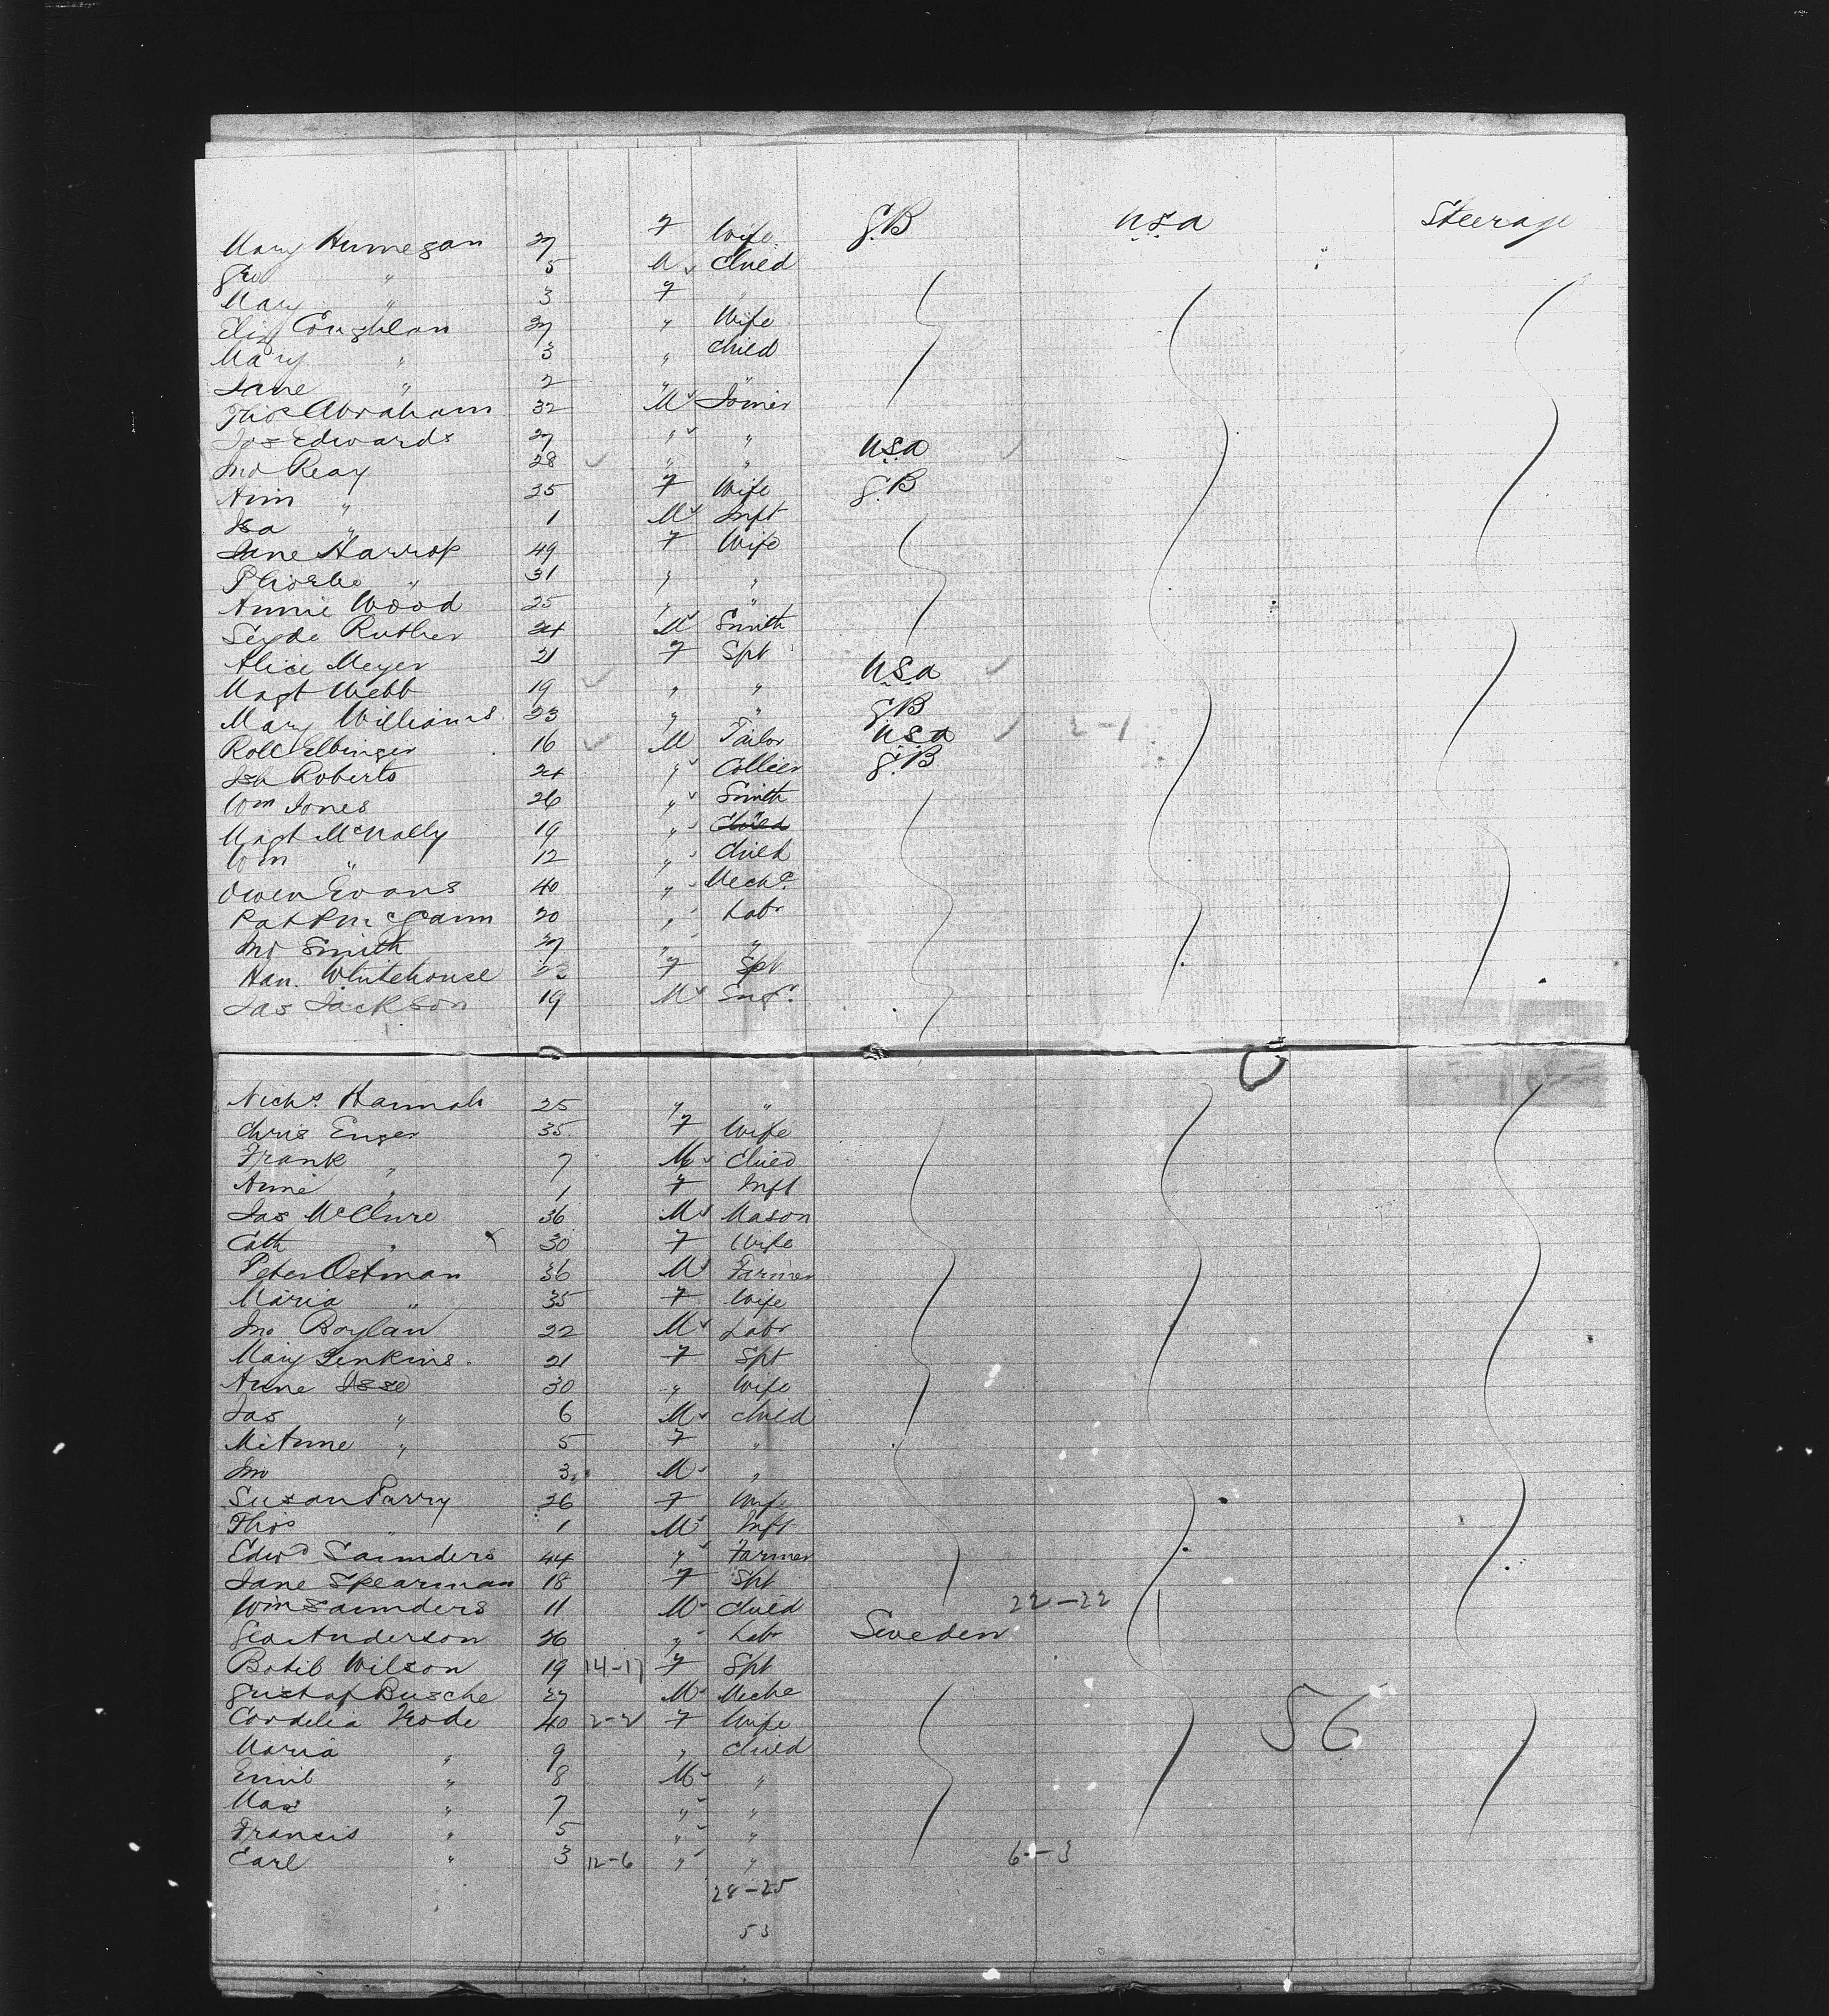 Mary Hunnegan 27 F Wife G.B U.S.A Steerage
Geo " 5 M Child
Mary " 3 F "
Eliz Coughlan 27 " Wife
Mary " 3 " Child
Jane " 2 " "
Thos Abraham 32 M Joiner
Jos Edwards 27 " " U.S.A
Jno Reay 28 " "
Ann " 25 F Wife G.B
Isa " 1 M Inft
Jane Harrop 49 F Wife
Phoebe " 31 " "
Annie Wood 25 " "
Seyde Ruther 24 M Smith
Alice Meyer 21 F Spt
Magt Webb 19 " " U.S.A
Mary Williams 23 " " G.B
Roll Elbinger 16 M Tailor U.S.A 2-1
Isa Roberts 24 " Collier G.B
Wm Jones 26 " Smith
Magt McNally 19 "
Wm " 12 " Child
Owen Evans 40 " Mech
Patk McGann 20 " Labr
Jno Smith 27 " "
Han. Whitehouse F Spt
Jas Jackson 19 M
Nichs. Hannah 25 " "
Chris Enger 35 F Wife
Frank " 7 M Child
Anne " 1 F Inft
Jas McClure 36 M Mason
Cath " x 30 F Wife
Peter Ostman 36 M Farmer
Maria " 35 F Wife
Jno Boylan 22 M Labr
Mary Jenkins 21 F Spt
Anne Isse 30 " Wife
Jas " 6 M Child
" 5 F "
Jno 3 M "
Susan Parry 26 F Wife
Thos " 1 M Inft
Edwd Saunders 44 " Farmer
Jane Spearman 18 F Spt
Wm Saunders 11 M Child 22-22
Geo Anderson 26 " Labr Sweden
Botil Wilson 19 14-17 F Spt
Gustaf Busche 27 M Mech
Cordelia 40 2-2 F Wife 56
Maria " 9 " Child
Emil " 8 M "
Max " 7 " "
Francis " 5 " "
Earl " 3 12-6 " " 6-3
28-25
53